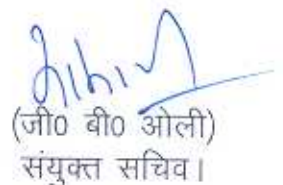 (जी0 बी0 ओली)
संयुक्त सचिव।